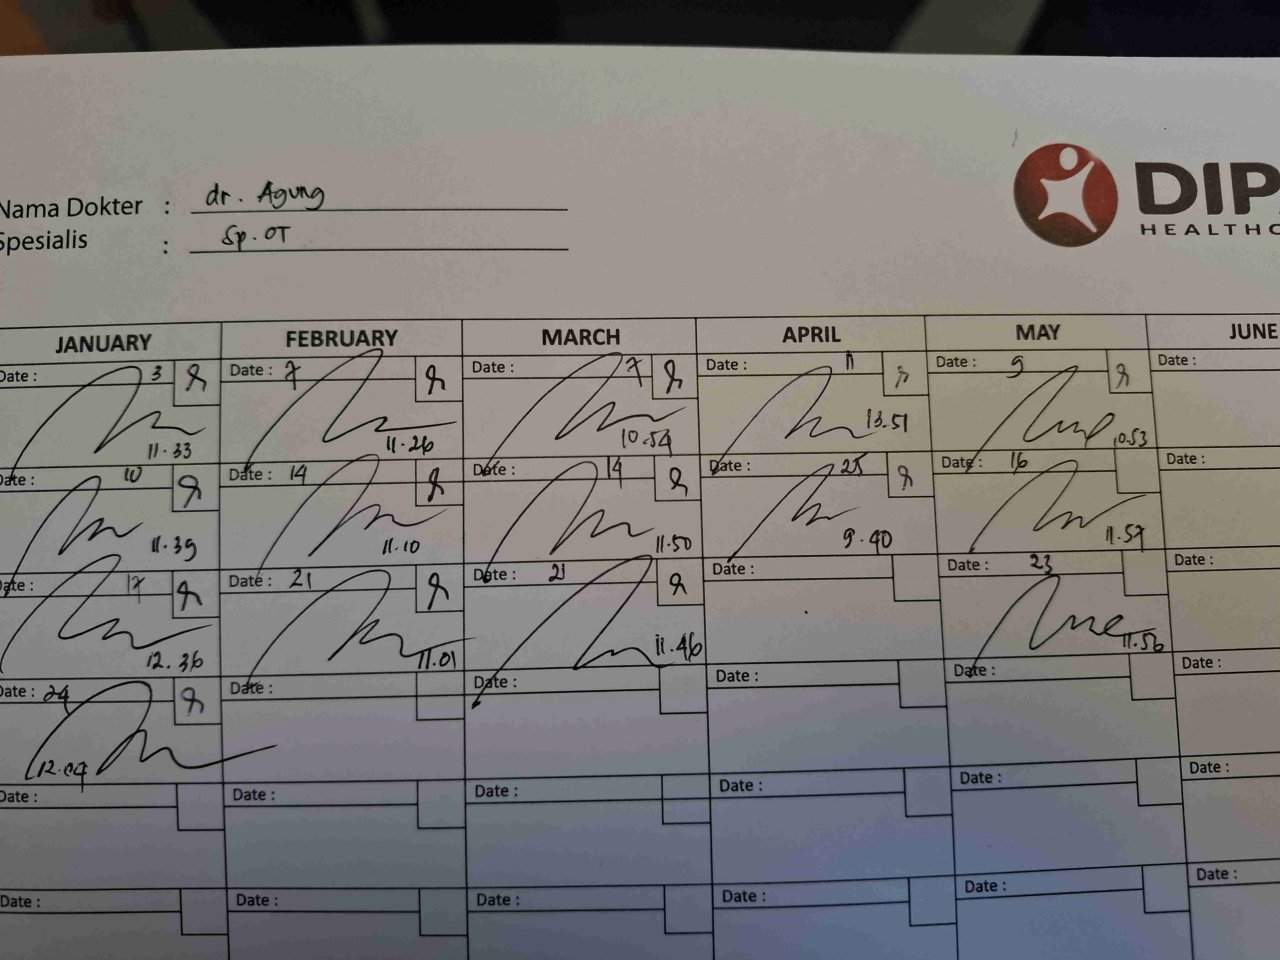 Nama Dokter : dr. Agung
Spesialis : Sp. OT
DIP
HEALTHC
JANUARY FEBRUARY MARCH APRIL MAY JUNE
Date : 3 Date : 7 Date : 7 Date : 11 Date : 9 Date :
11.33 11.26 10.54 13.51 10.53
Date : 10 Date : 14 Date : 14 Date : 25 Date : 16 Date :
11.39 11.10 11.50 9.40 11.57
Date : 17 Date : 21 Date : 21 Date : Date : 23 Date :
12.36 11.01 11.46 11.56
Date : 24 Date : Date : Date : Date : Date :
12.04
Date : Date : Date : Date : Date : Date :
Date : Date : Date : Date : Date : Date :